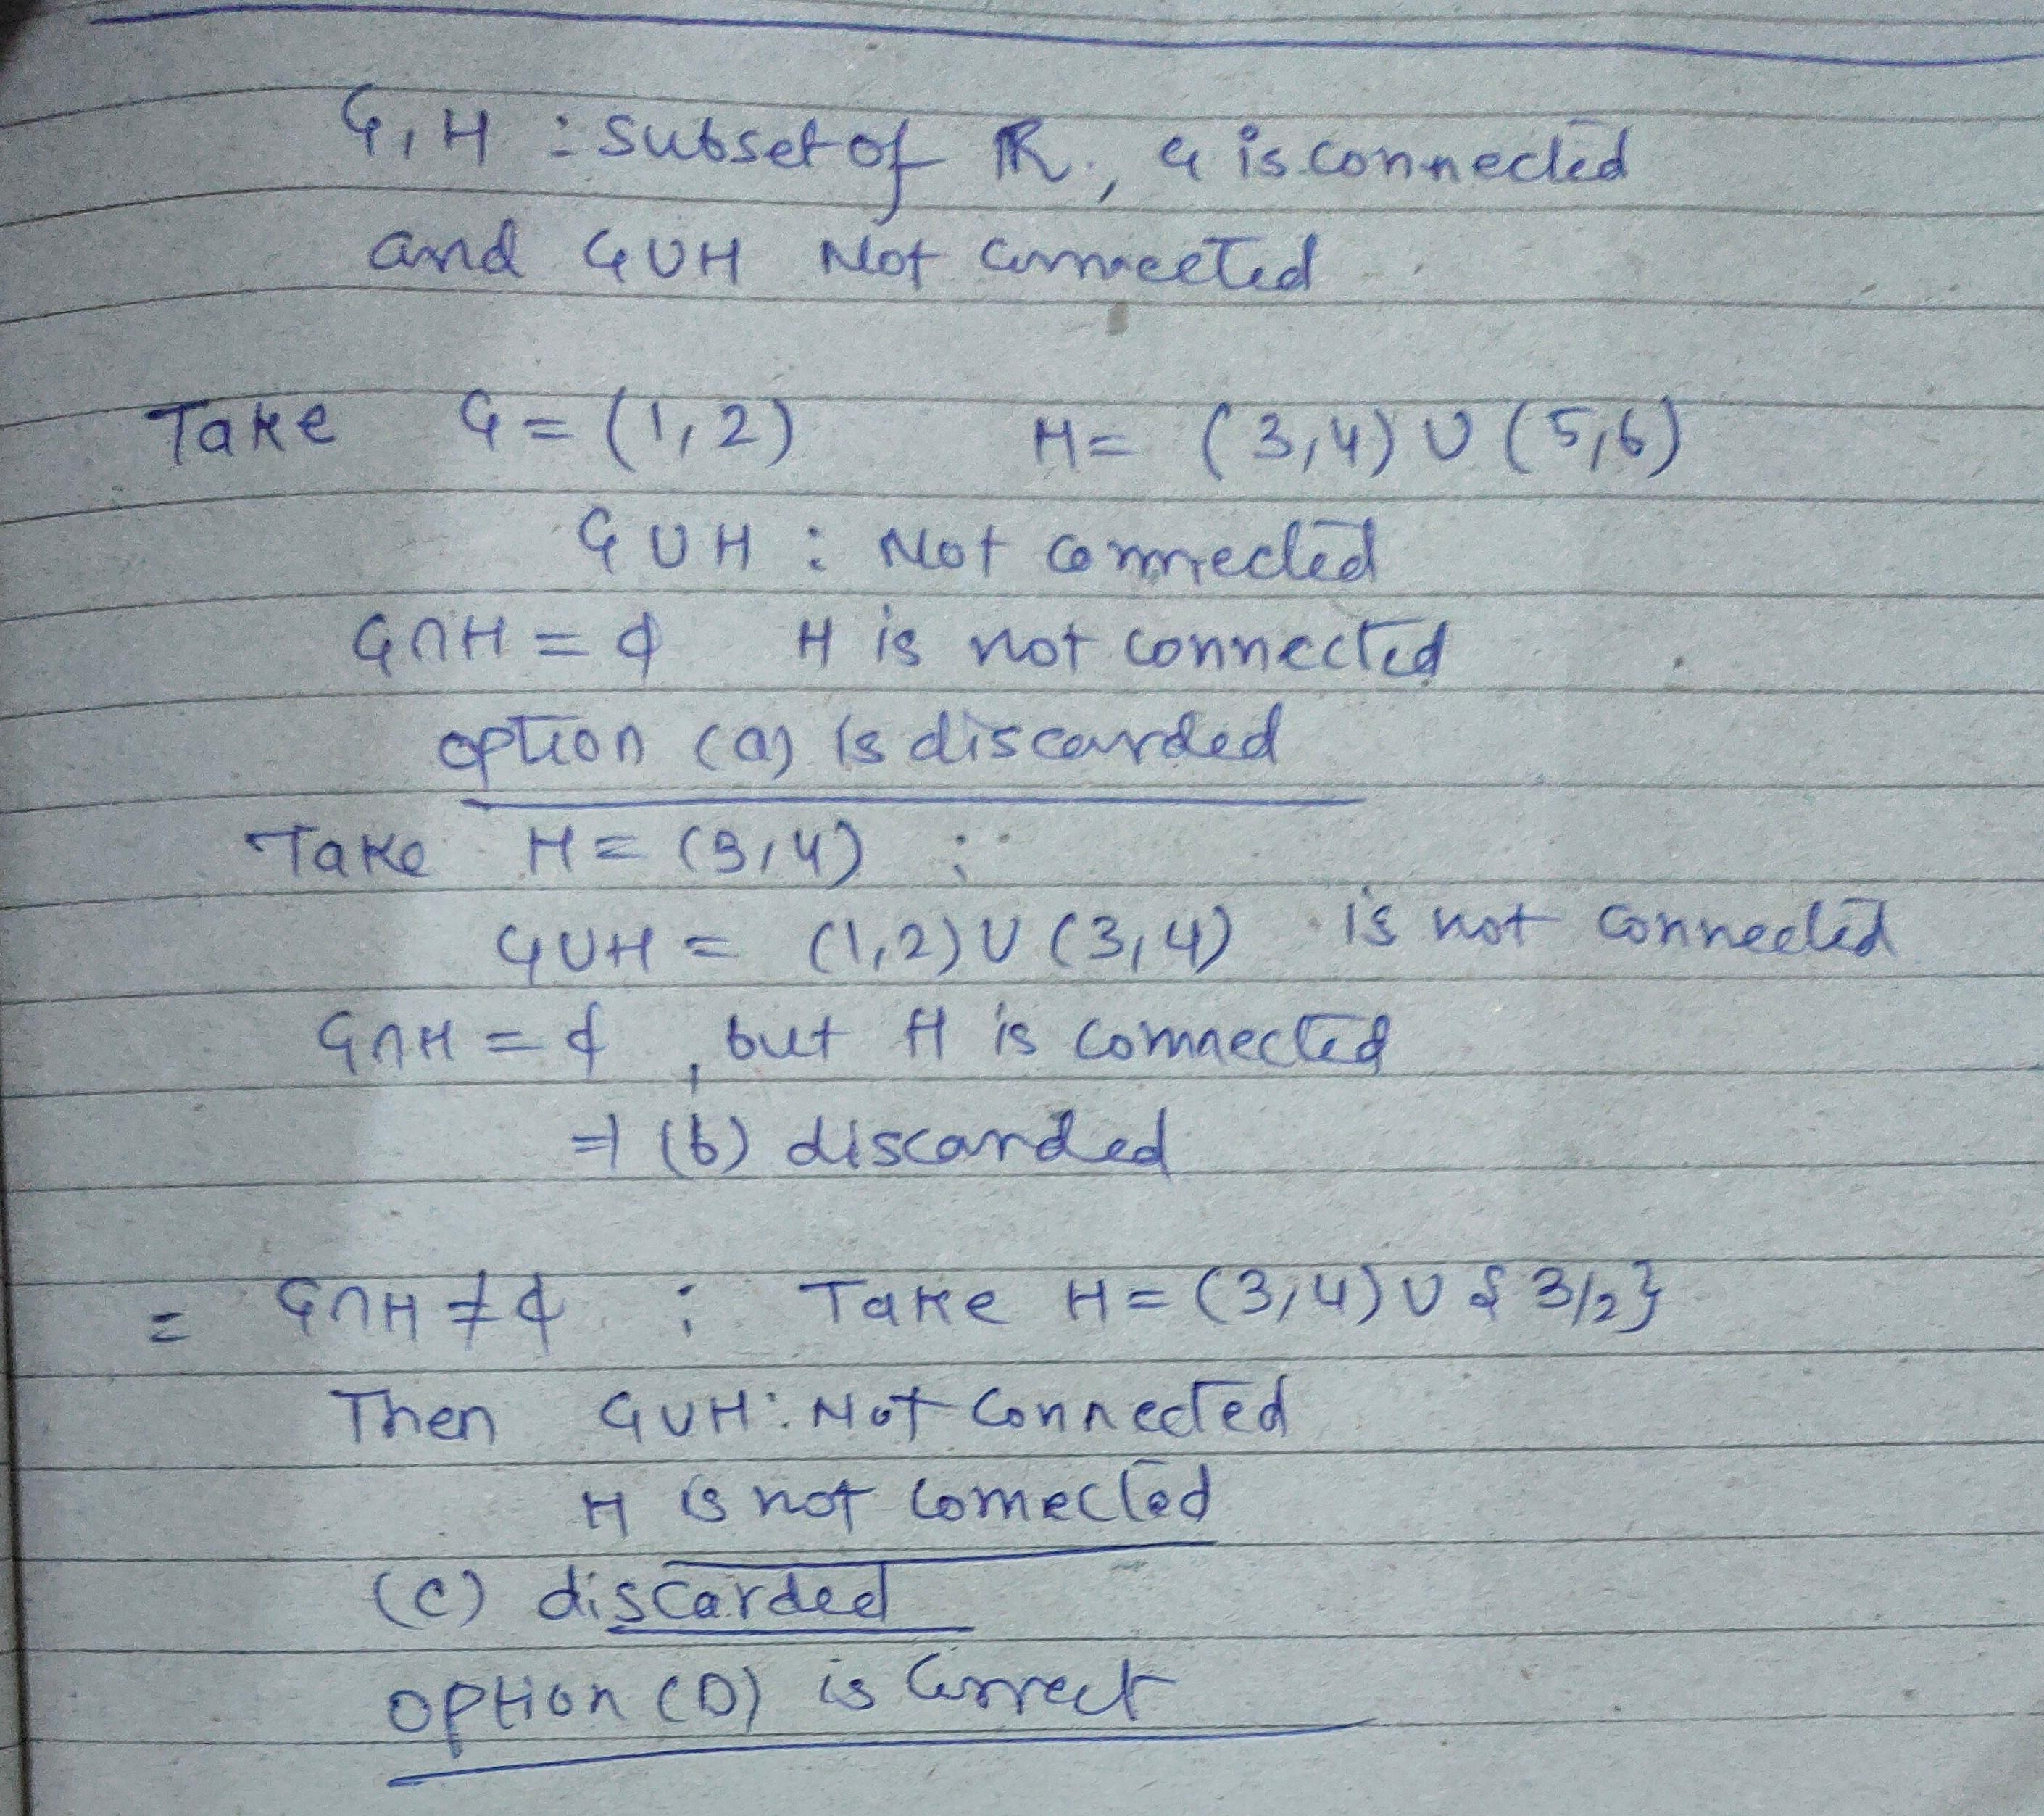 G, H : subset of ℝ, G is connected
and G∪H Not connected
Take G = (1,2) H = (3,4) ∪ (5,6)
G∪H : Not connected
G∩H = ϕ H is not connected
option (a) is discarded
Take H = (3,4) ;
G∪H = (1,2) ∪ (3,4) is not connected
G∩H = ϕ, but H is connected
⇒ (b) discarded
= G∩H ≠ ϕ : Take H = (3,4) ∪ {3/2}
Then G∪H : Not connected
H is not connected
(c) discarded
option (D) is correct